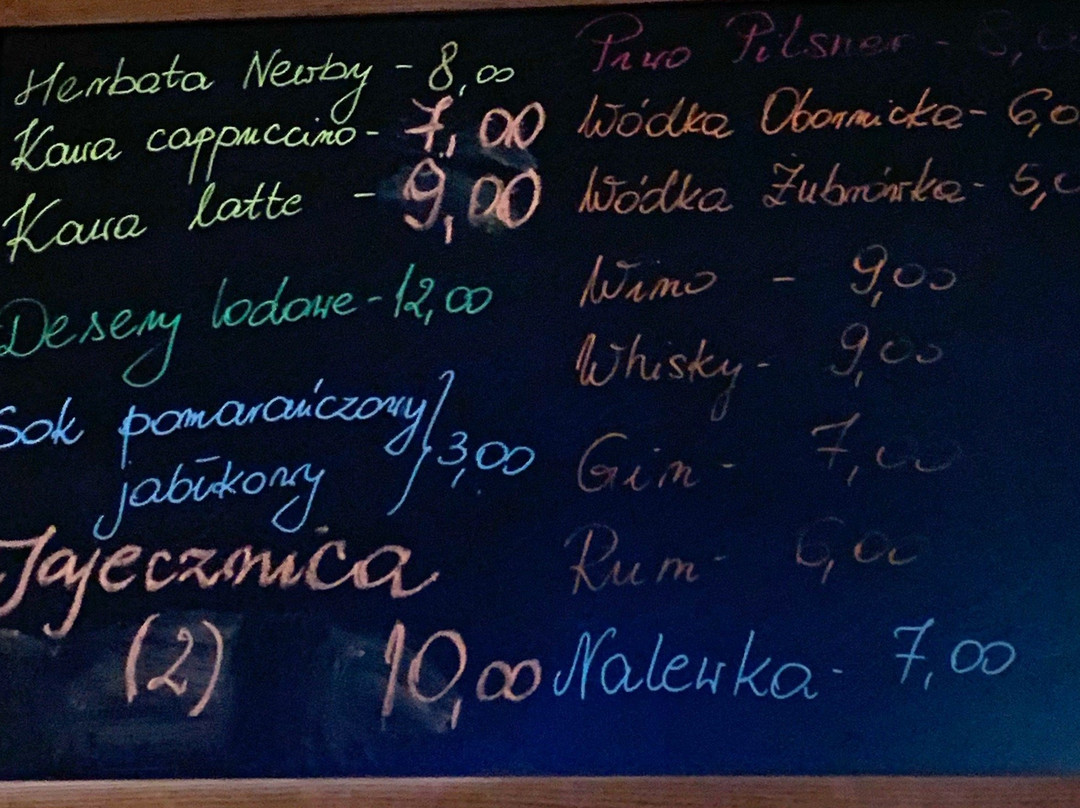 Herbata Newby - 8,00
Kawa cappuccino - 7,00
Kawa latte - 9,00
Desery lodowe - 12,00
Sok pomarańczowy
jabłkowy } 3,00
Jajecznica
(2) 10,00
Piwo Pilsner -
Wódka Obornicka - 6,0
Wódka Żubrówka - 5,
Wino - 9,00
Whisky - 9,00
Gin - 7,00
Rum - 6,00
Nalewka - 7,00